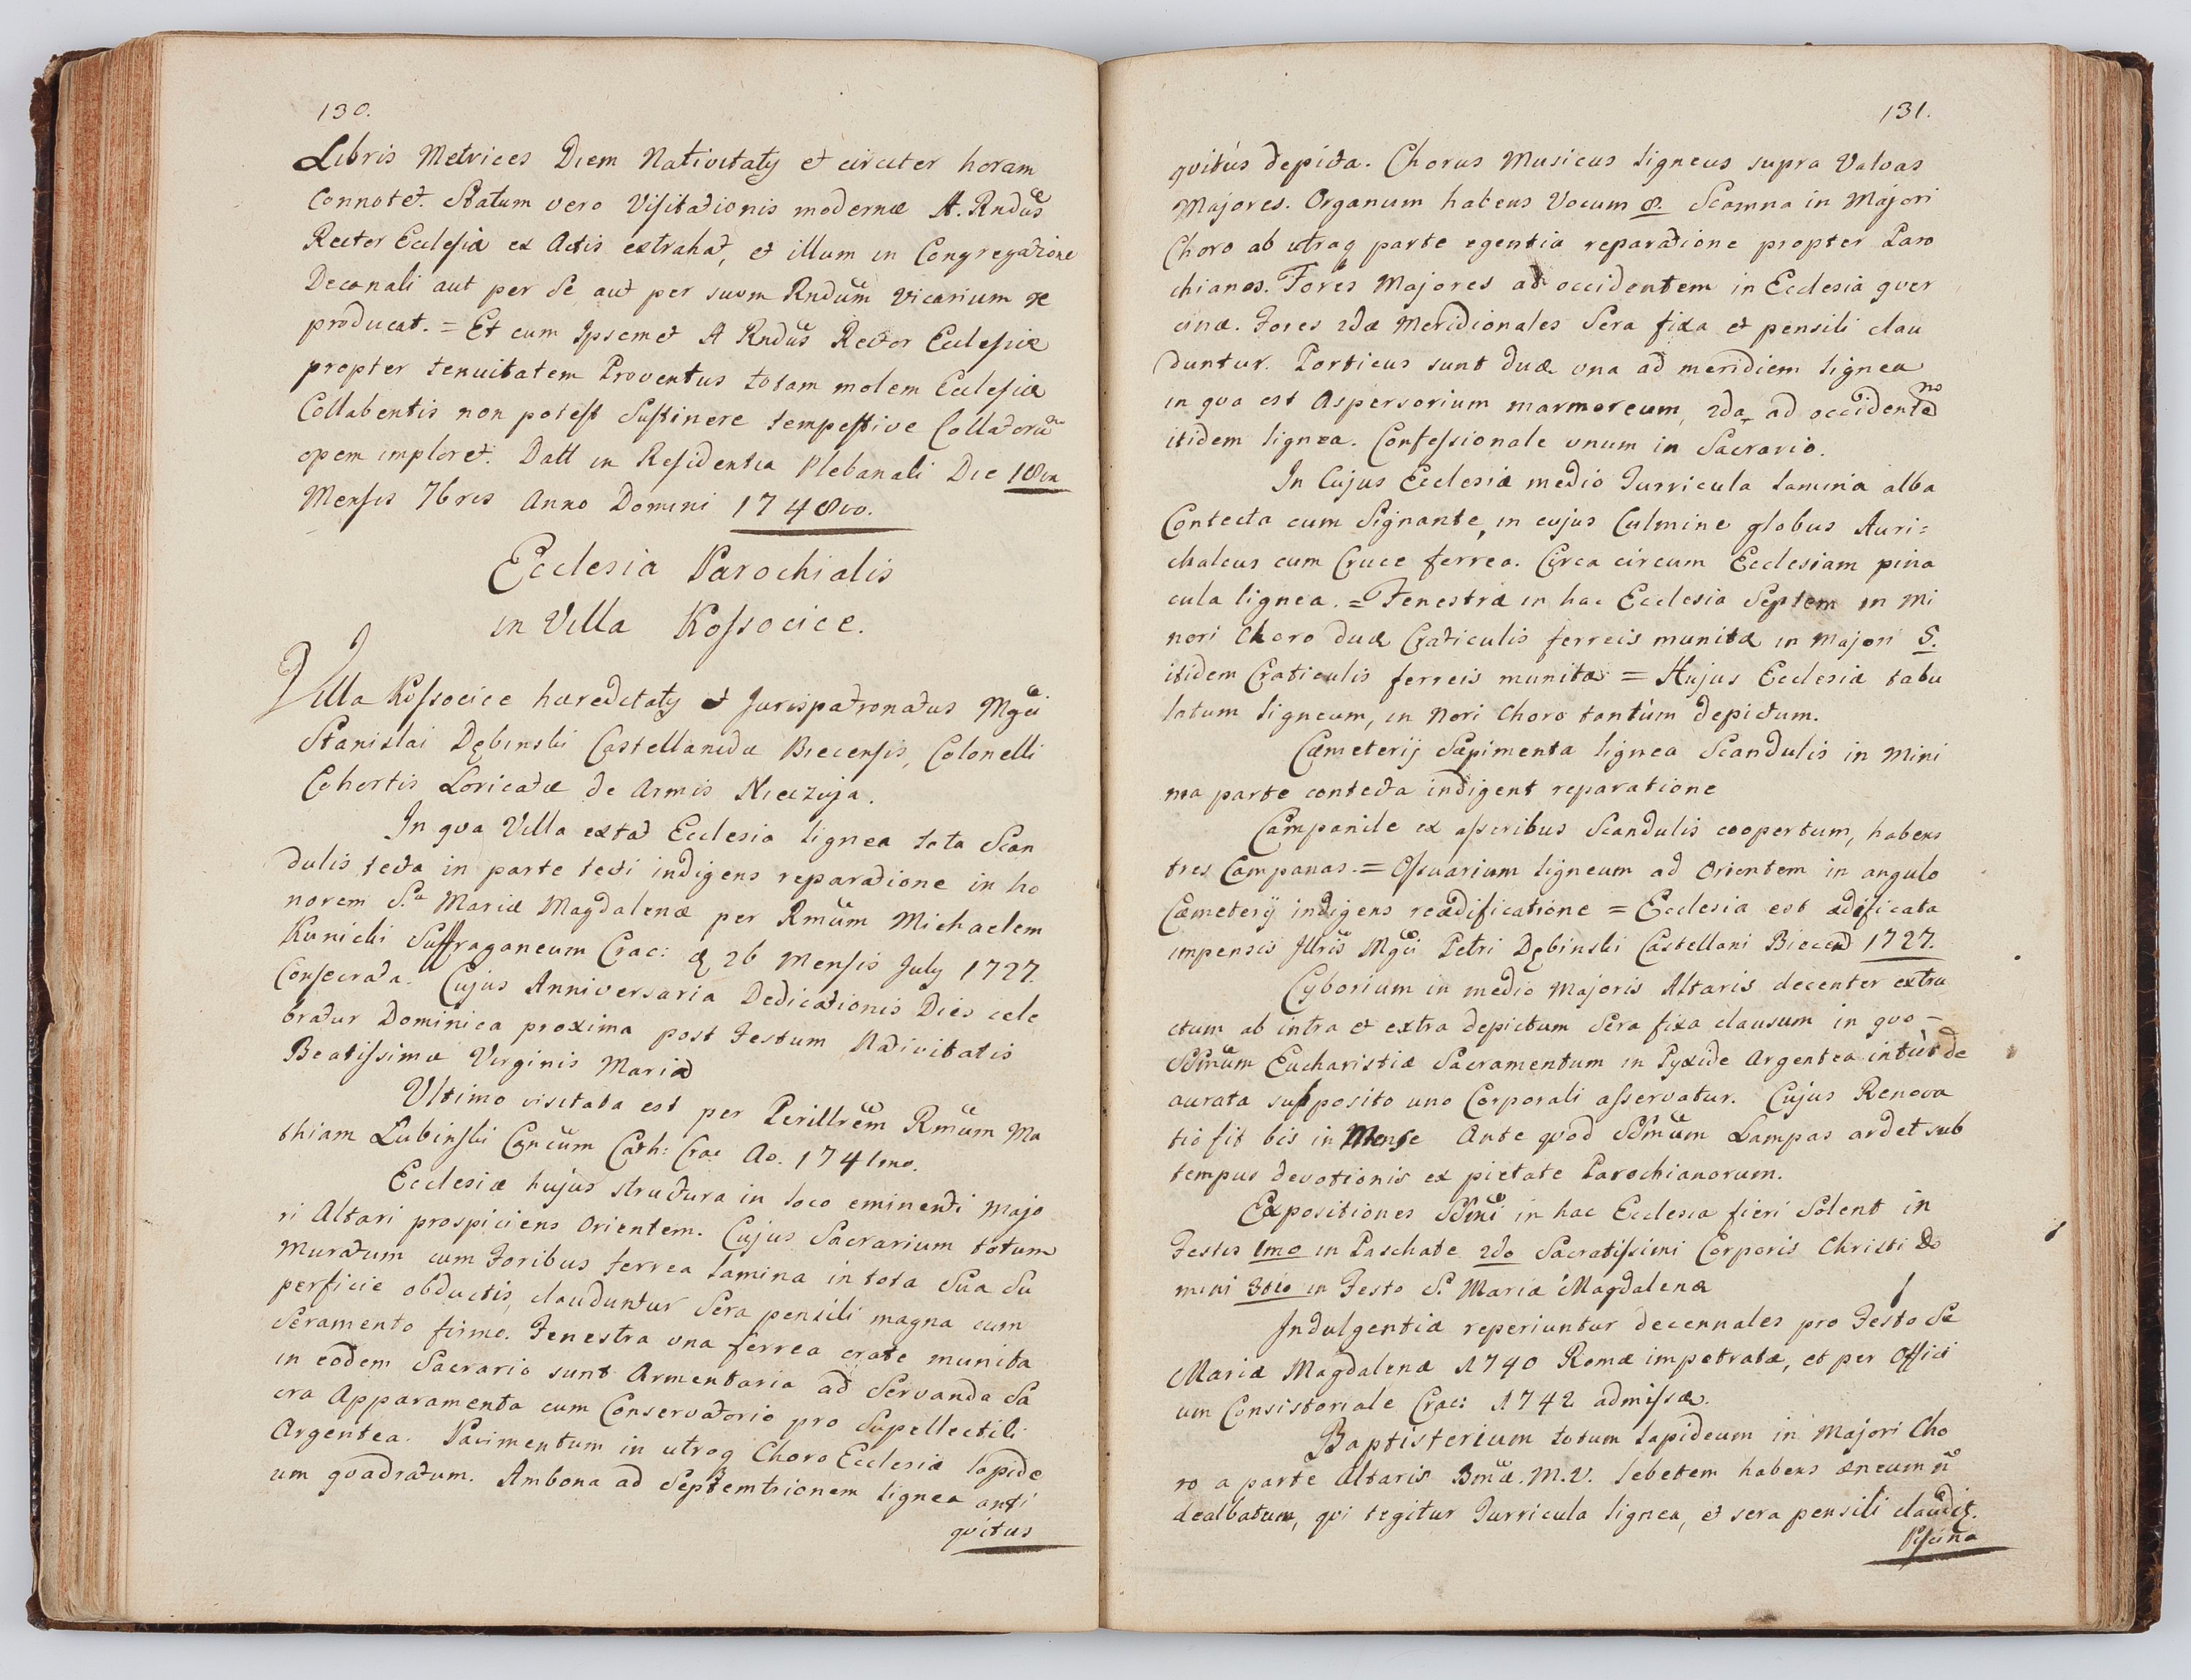 130.
Libris Metrices Diem Nativitaty et circiter horam
Connotet. Statum vero Visitationis modernæ A. Rndus
Rector Ecclesiæ ex Actis extrahat, et illum in Congregatione
Decanali aut per Se aut per suum Rndum Vicarium re
producat. = Et cum Ipsemet A Rndus Rector Ecclesiæ
propter tenuitatem Proventus totam molem Ecclesiæ
Collabentis non potest Sustinere tempestive Collatorum
opem imploret. Datt in Residentia Plebanali Die 18va
Mensis 7bris Anno Domini 1748vo.
Ecclesia Parochialis
in Villa Kossocice.
Villa Kossocice hæreditaty et Jurispatronatus Mgci
Stanislai Dębinski Castellanidæ Biecensis, Colonelli
Cohortis Loricatæ de Armis Nieczuja.
In qva Villa extat Ecclesia lignea tota Scan
dulis tecta in parte tecti indigens reparatione in ho
norem S.æ Mariæ Magdalenæ per Rmum Michaelem
Kunicki Suffraganeum Crac: d 26 Mensis July 1727.
Consecrata. Cujus Anniversaria Dedicationis Dies cele
bratur Dominica proxima post Festum Nativitatis
Beatissimæ Virginis Mariæ
Ultimo visitata est per Perillrem Rmum Ma
thiam Lubinski Cancum Cath: Crac Ao. 1741mo.
Ecclesiæ hujus structura in loco eminenti Majo
ri Altari prospiciens Orientem. Cujus Sacrarium totum
Muratum cum Foribus ferrea Lamina in tota Sua Su
perficie obductis, clauduntur Sera pensili magna cum
Seramento firmo. Fenestra una ferrea crate munita
in eodem Sacrario sunt Armentaria ad Servanda Sa
cra Apparamenta cum Conservatorio pro Supellectili
Argentea. Pavimentum in utroq Choro Ecclesiæ lapide
um qvadratum. Ambona ad Septemtrionem lignea anti
qvitus
131.
qvitùs depicta. Chorus Musicus ligneus supra Valvas
Majores. Organum habens Vocum 8. Scamna in Majori
Choro ab utraq parte egentia reparatione propter Paro
chianos. Fores Majores ad occidentem in Ecclesia qver
cinæ. Fores 2dæ Meridionales Sera fixa et pensili clau
duntur. Porticus sunt duæ una ad meridiem lignea
in qva est Aspersorium marmoreum, 2da ad occidentem
itidem lignea. Confessionale unum in Sacrario.
In Cujus Ecclesiæ medio Turricula lamina alba
Contecta cum Signante, in cujus Culmine globus Auri=
chalcus cum Cruce ferrea. Circa circum Ecclesiam pina
cula lignea. = Fenestræ in hac Ecclesia Septem in Mi
nori Choro duæ Craticulis ferreis munitæ in Majori 5.
itidem Craticulis ferreis munitæ = Hujus Ecclesiæ tabu
latum ligneum, in Nori Choro tantùm depictum.
Cæmeterij Sæpimenta lignea Scandulis in Mini
ma parte contecta indigent reparatione
Campanile ex asseribus Scandulis coopertum, habens
tres Campanas. = Ossuarium ligneum ad Orientem in angulo
Cæmeterij indigens reædificatione = Ecclesia est ædificata
impensis Illris Mgci Petri Dębinski Castellani Biecen 1727.
Cyborium in medio Majoris Altaris decenter extru
ctum ab intra et extra depictum Sera fixa clausum in qvo –
SSmum Eucharistiæ Sacramentum in Pyxide Argentea intùs de
aurata supposito uno Corporali asservatur. Cujus Renova
tio fit bis in Mense Ante qvod SSmum Lampas ardet sub
tempus devotionis ex pietate Parochianorum.
Expositiones SSmi in hac Ecclesia fieri Solent in
Festis 1mo in Paschate 2do Sacratissimi Corporis Christi Do
mini 3tio in Festo S. Mariæ Magdalenæ
Indulgentiæ reperiuntur decennales pro Festo Sæ
Mariæ Magdalenæ 1740 Romæ impetratæ, et per Offici
um Consistoriale Crac: 1742 admissæ.
Baptisterium totum lapideum in Majori Cho
ro a parte Altaris Bmæ. M.V. lebetem habens æneum n
dealbatum, qvi tegitur Turricula lignea, et sera pensili claudit.
Piscina